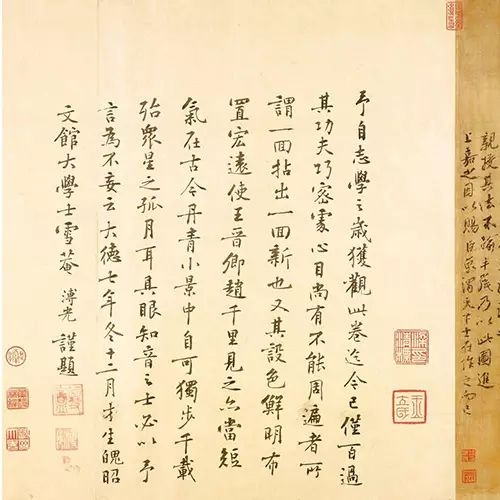 親授其法不踰半歲乃以此圖進
上嘉之因以賜臣京謂天下士在作之而已
予自志學之歲獲觀此卷迄今已僅百過
其功夫巧密處心目尚有不能周遍者所
謂一回拈出一回新也又其設色鮮明布
置宏遠使王晉卿趙千里見之亦當短
氣在古今丹青小景中自可獨步千載
殆衆星之孤月耳具眼知音之士必以予
言為不妄云大德七年冬十二月才生魄昭
文館大學士雪菴溥光謹題